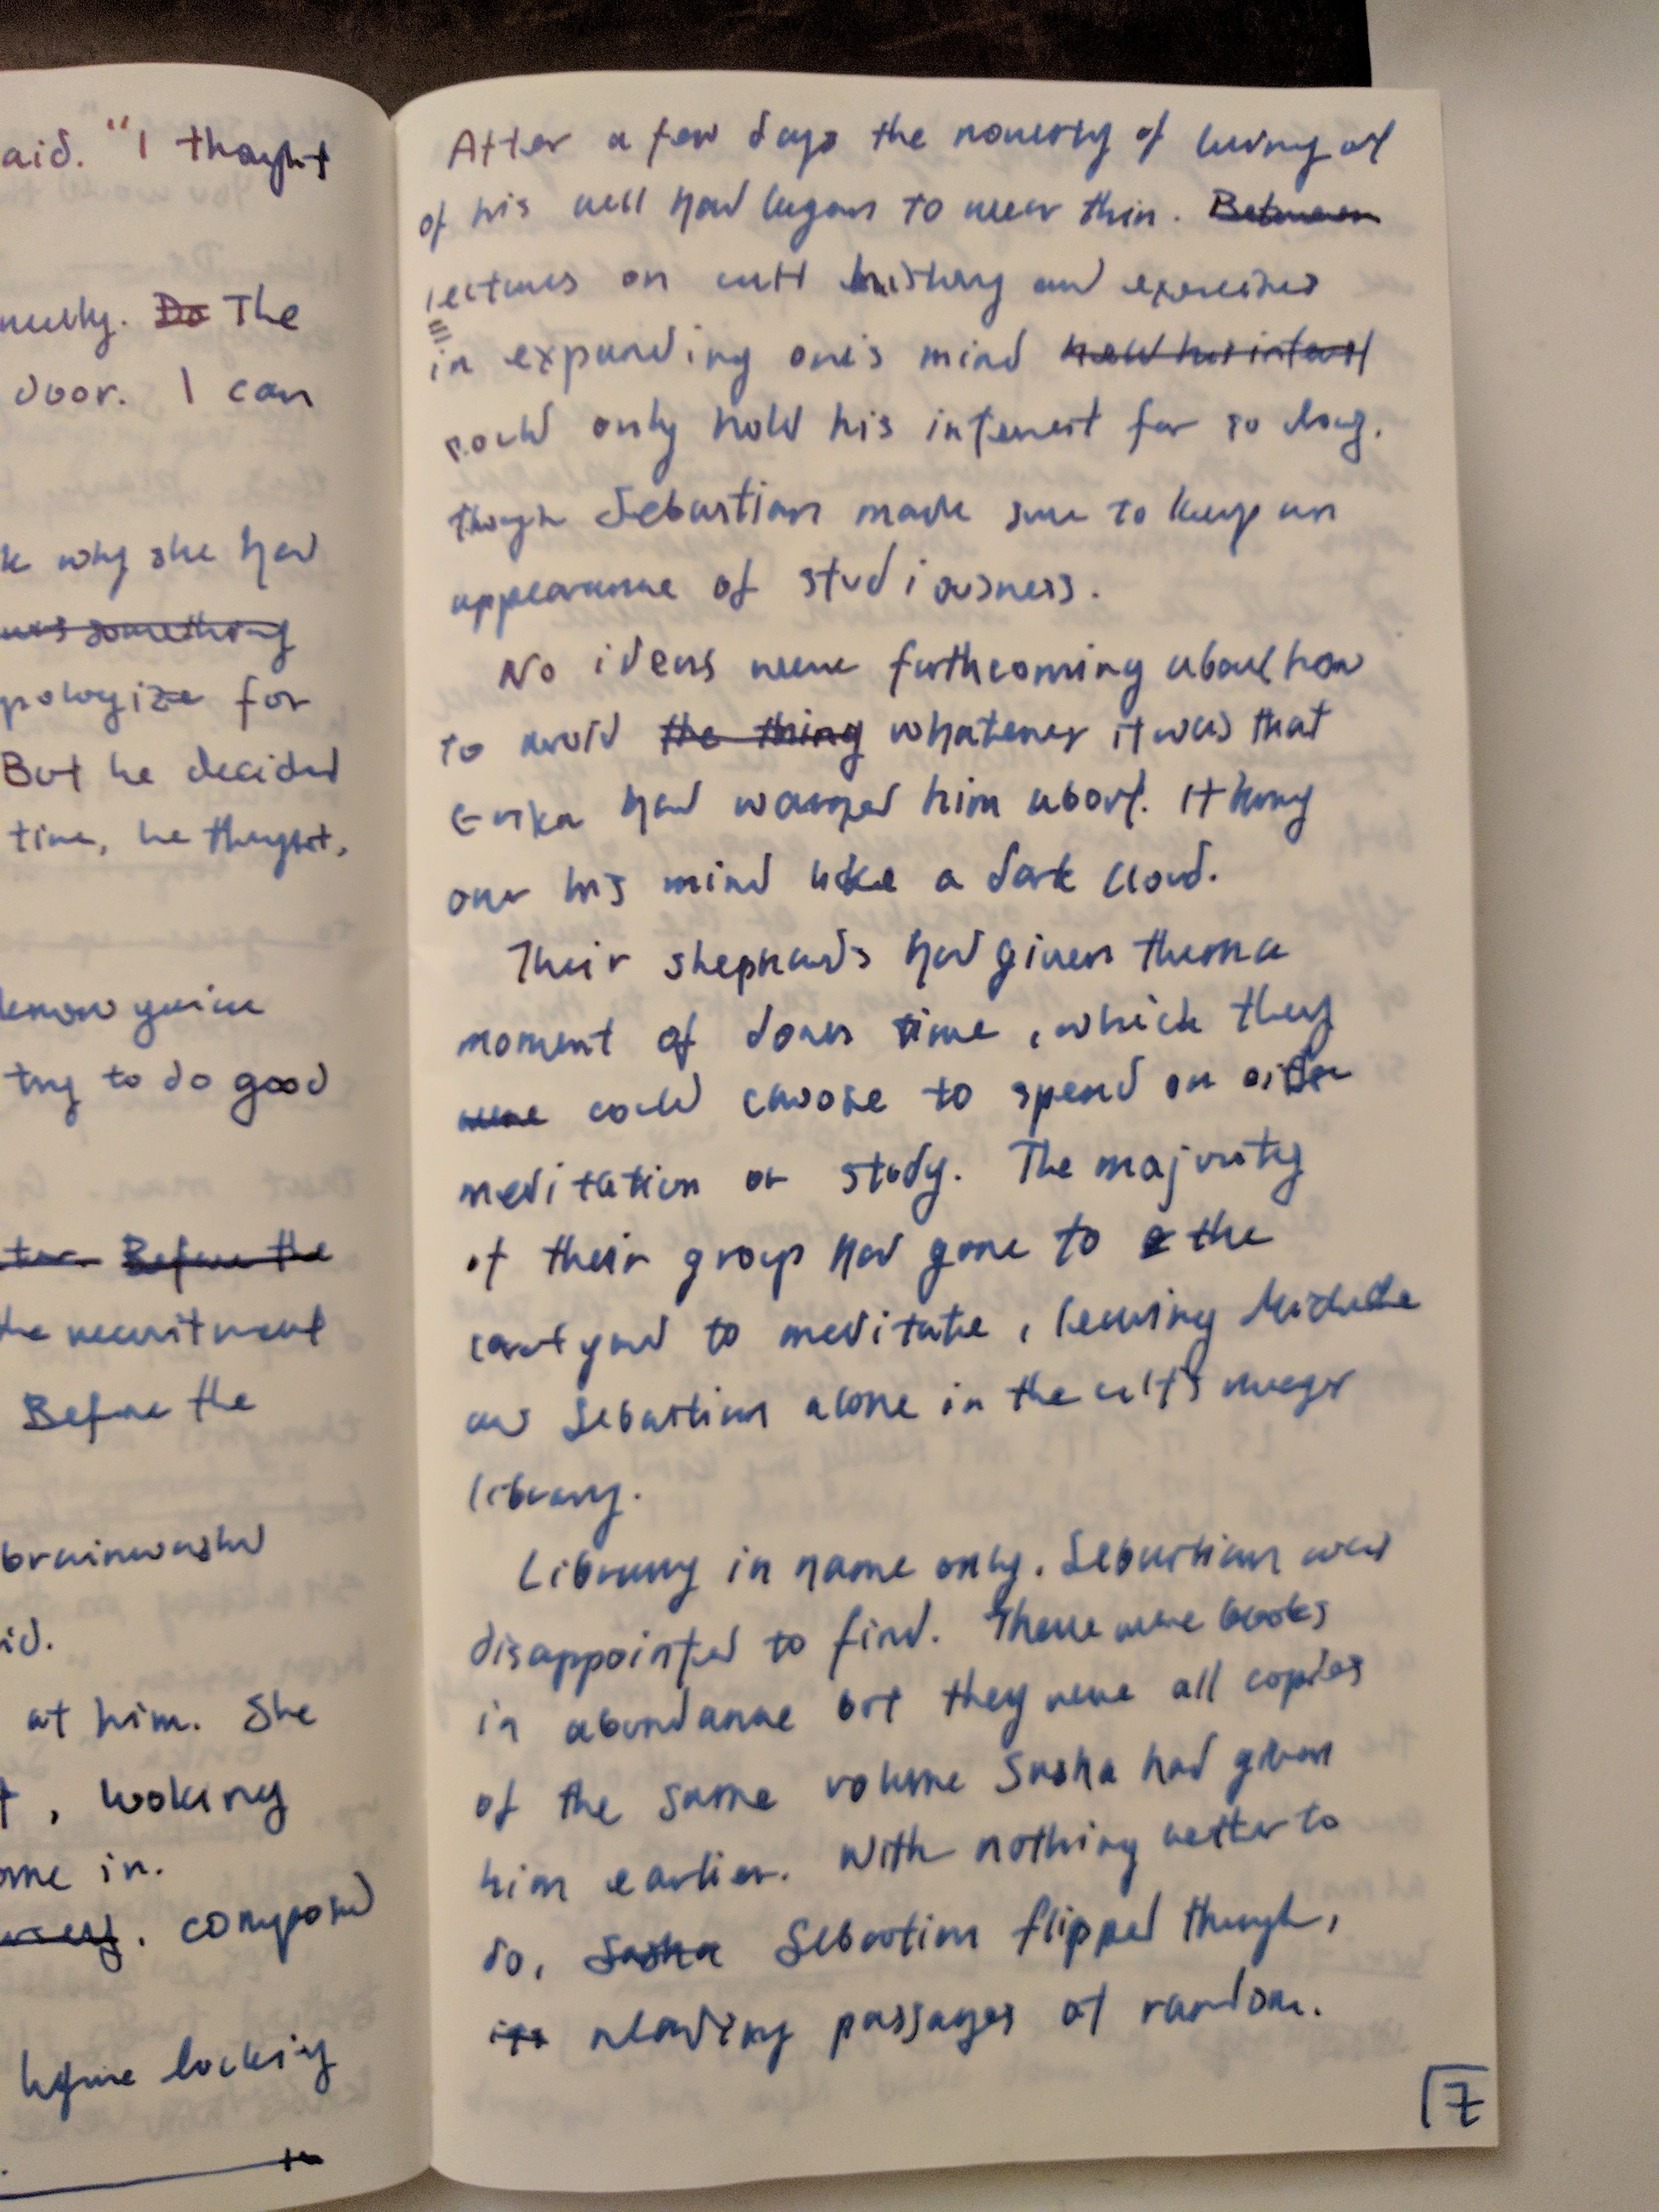 aid. "I thought
The
door. I can
why she had
something
pologize for
But he decided
time, he thought.
know you're
try to do good
Before the
the recruitment
Before the
brainwashed
id.
at him. She
, looking
ome in.
. composed
before locking
After a few days the novelty of being out
of his cell had began to wear thin. Between
lectures on cult history and exercises
in expanding one's mind held his interest
could only hold his interest for so long.
though Sebastian made sure to keep an
appearance of studiousness.
No ideas were forthcoming about how
to avoid the thing whatever it was that
Erika had warned him about. It hung
over his mind like a dark cloud.
Their shephards had given them a
moment of down time, which they
were could choose to spend on either
meditation or study. The majority
of their group had gone to the
courtyard to meditate, leaving Michelle
and Sebastian alone in the cult's meager
library.
Library in name only. Sebastian was
disappointed to find. There were books
in abundance but they were all copies
of the same volume Sasha had given
him earlier. With nothing better to
do, Sasha Sebastian flipped though,
its reading passages at random.
17